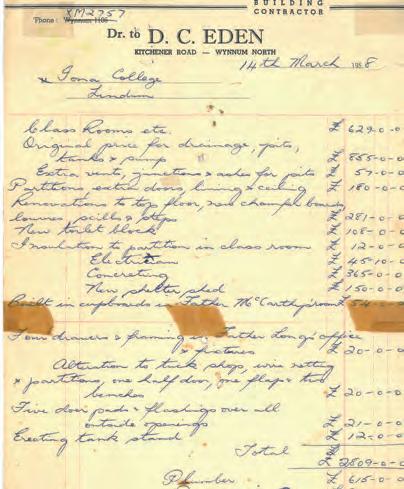 BUILDING
CONTRACTOR
XM2757
Phone: Wynnum 1106
Dr. to D. C. EDEN
KITCHENER ROAD — WYNNUM NORTH
14th March 1958
* Iona College
Lindum
Class Rooms etc. £ 629-0-0
Original price for drainage, pits,
tanks & pump £ 855-0-0
Extra vents, junctions & ashes for pits 57-0-0
Partitions, extra doors, lining & ceiling £ 180-0-0
Renovations to top floor, new chamfer boards
louvres, scills & steps £ 281-0-0
New toilet block £ 108-0-0
Insulation to partition in class room £ 12-0-0
Electrician £ 45-10-0
Concreting £ 365-0-0
New shelter shed £ 150-0-0
Built in cupboards in Father McCarthy's room £ 54-0-0
Four drawers & framing in Father Long's office
& fixtures £ 20-0-0
Alteration to tuck shop, wire netting
& partitions, one half door, one flap & two
benches £ 20-0-0
Five door pads & flashings over all
outside openings £ 21-0-0
Erecting tank stand £ 12-0-0
Total £ 2809-0-0
Plumber £ 615-0-0